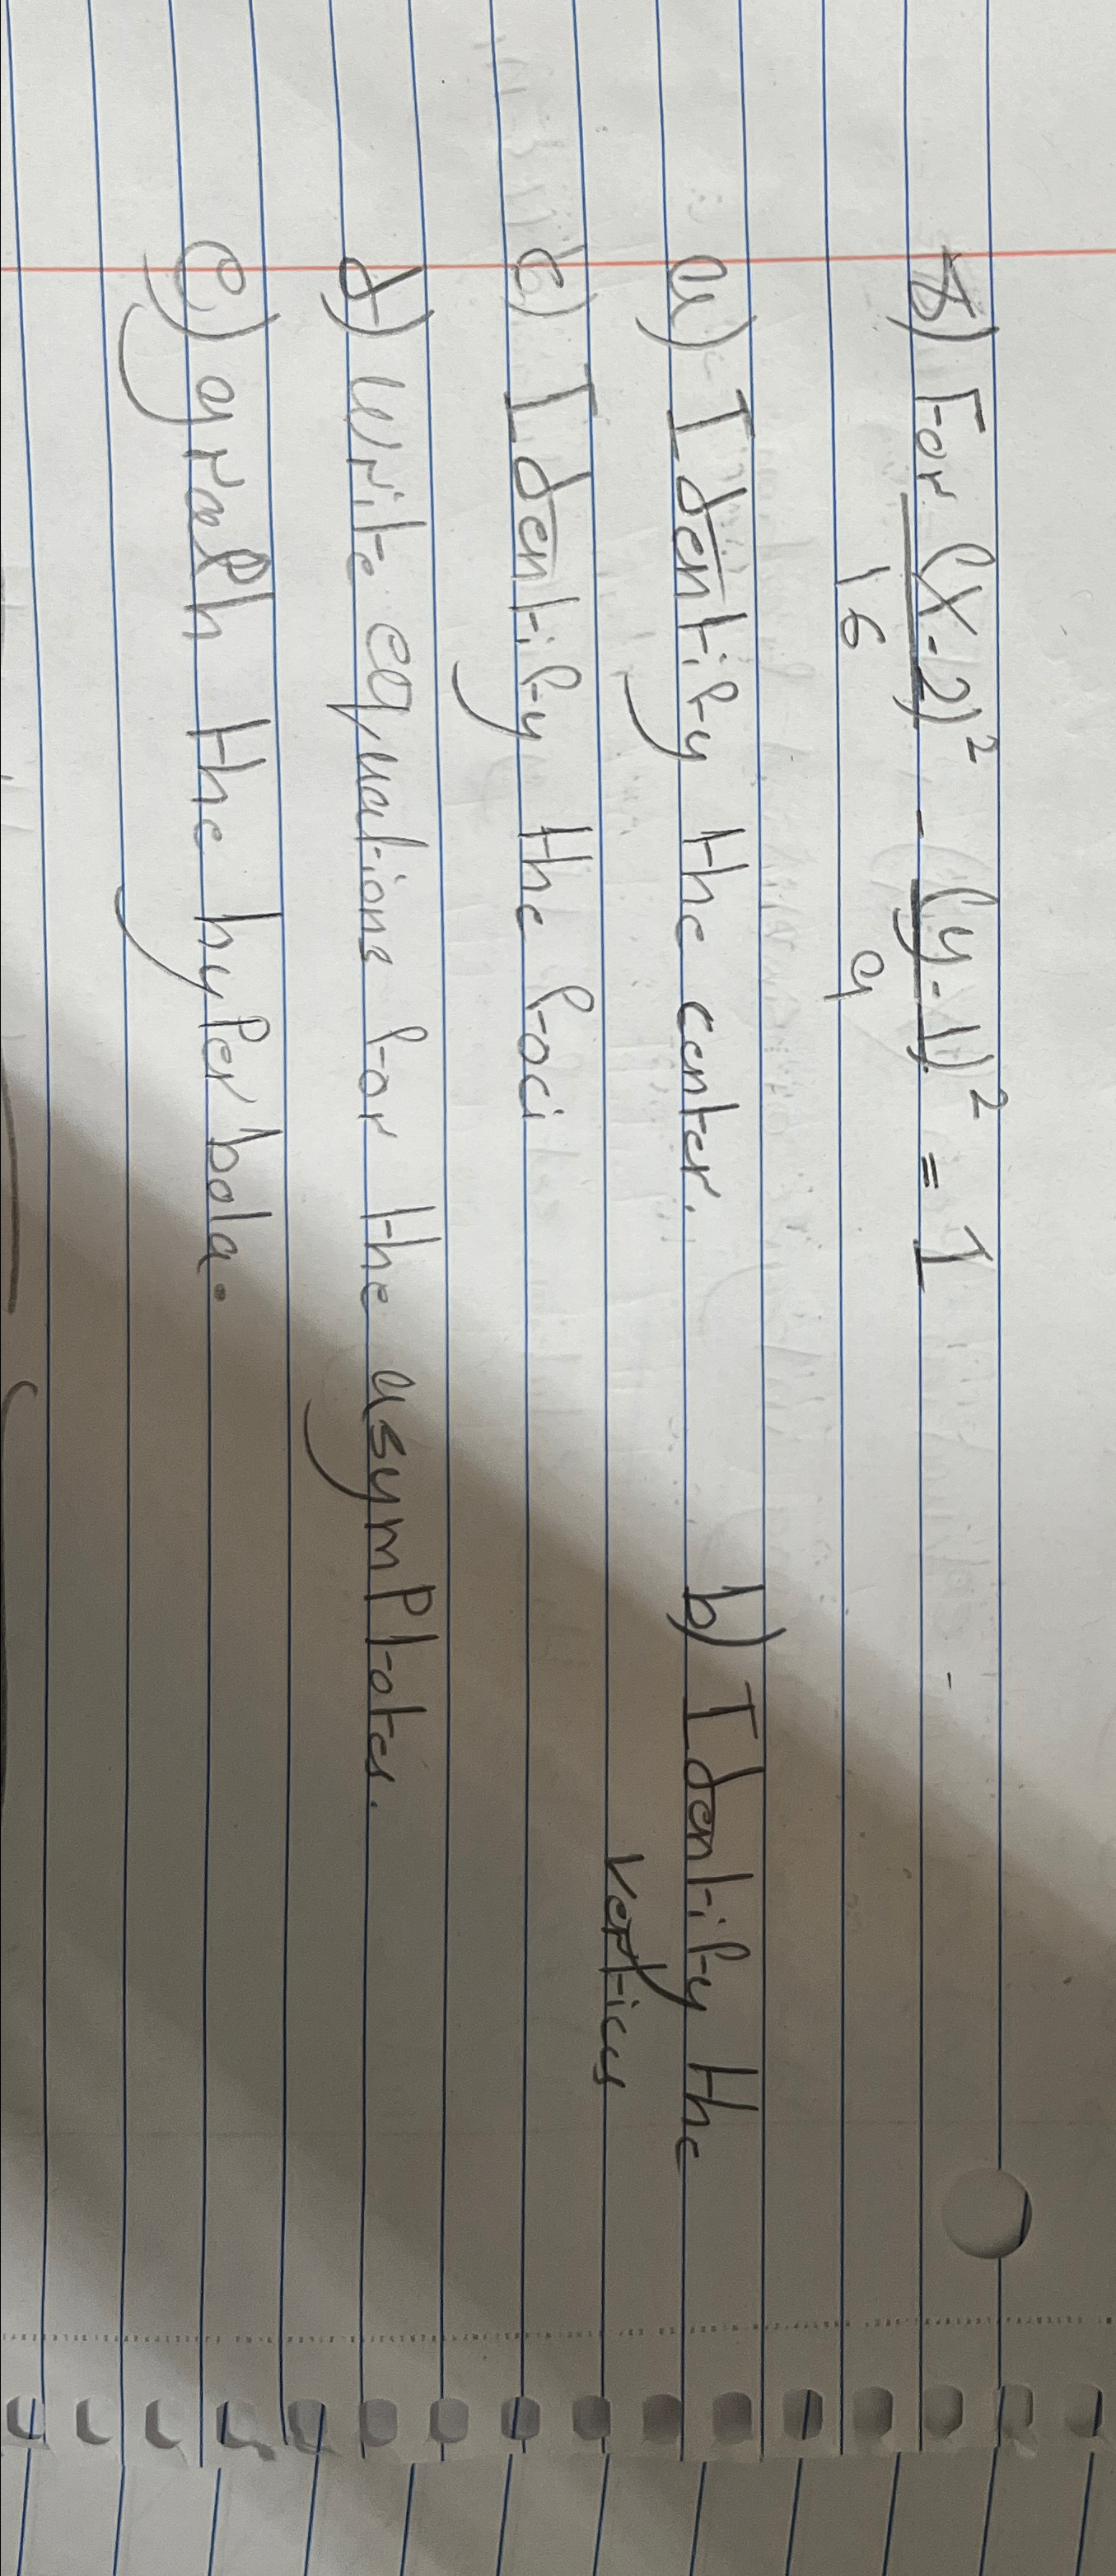 5) For (x-2)² - (y-1)² = 1
16 9
a) Identify the center. b) Identify the
vertices
c) Identify the foci
d) write equations for the asymptotes.
e) graph the hyperbola.